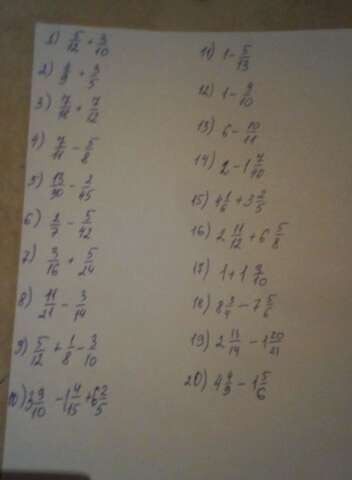 1) 5/12 + 3/10
2) 4/9 + 3/5
3) 7/18 + 7/12
4) 7/11 - 5/8
5) 13/30 - 2/45
6) 2/7 - 5/42
7) 3/16 + 5/24
8) 11/21 - 3/14
9) 5/12 + 1/8 - 3/10
10) 3 9/10 - 1 4/15 + 6 2/5
11) 1 - 5/13
12) 1 - 9/10
13) 6 - 10/11
14) 2 - 1 7/10
15) 4 1/6 + 3 2/5
16) 2 11/12 + 6 5/8
17) 1 + 1 9/10
18) 8 3/4 - 7 5/6
19) 2 13/14 - 1 20/21
20) 4 4/9 - 1 5/6